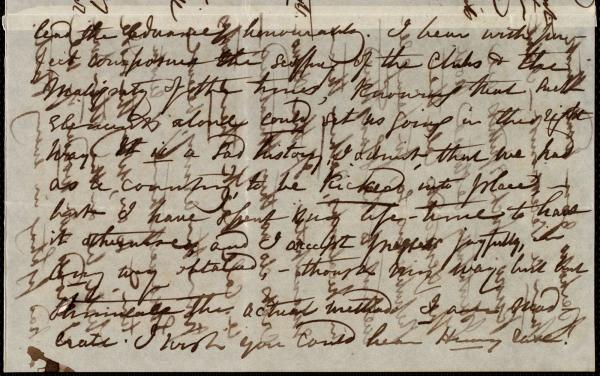 lead the advance, honourably. I hear with per-
fect composure the scoffing of the Clubs & the
Malignity of the times, Knowing that such
elements alone could set us going in the right
way. It is a sad history, I admit, that we had
as a community to be "Kicked into place" —
but I have spent my life-time to have
it otherwise, and I accept progress joyfully, in
any way obtained — though my way, but
the actual method. I am glad
I wish you could hear Henry rave!